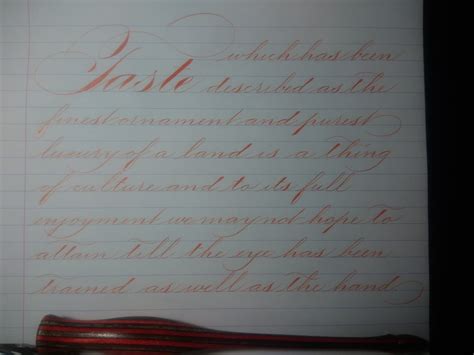 Taste which has been
described as the
finest ornament and purest
luxury of a land is a thing
of culture and to its full
enjoyment we may not hope to
attain till the eye has been
trained as well as the hand